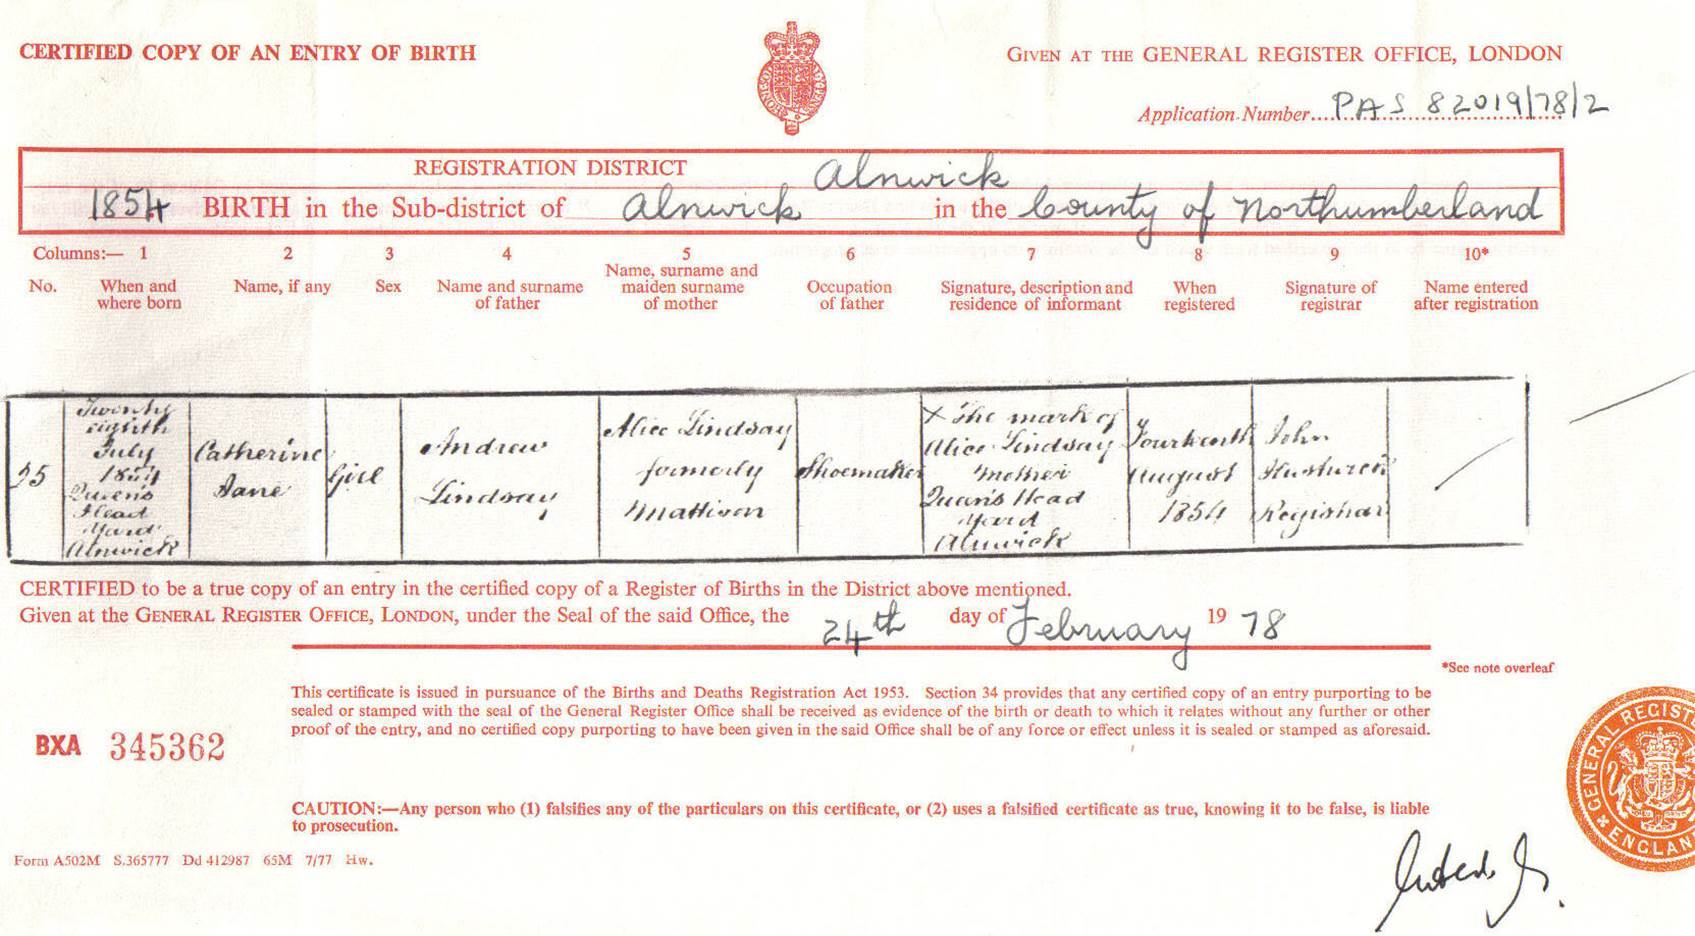 CERTIFIED COPY OF AN ENTRY OF BIRTH
GIVEN AT THE GENERAL REGISTER OFFICE, LONDON
Application Number PAS 82019/78/2
REGISTRATION DISTRICT Alnwick
1854 BIRTH in the Sub-district of Alnwick in the County of Northumberland
Columns:— 1 2 3 4 5 6 7 8 9 10*
No.
When and
where born
Name, if any
Sex
Name and surname
of father
Name, surname and
maiden surname
of mother
Occupation
of father
Signature, description and
residence of informant
When
registered
Signature of
registrar
Name entered
after registration
Twenty
eighth
July
1854
Queen's
Head
Yard
Alnwick
Catherine
Jane
Girl
Andrew
Lindsay
Alice Lindsay
formerly
Mattison
Shoemaker
X The mark of
Alice Lindsay
Mother
Queen's Head
Yard
Alnwick
Fourteenth
August
1854
John
Registrar
CERTIFIED to be a true copy of an entry in the certified copy of a Register of Births in the District above mentioned.
Given at the GENERAL REGISTER OFFICE, LONDON, under the Seal of the said Office, the 24th day of February 19 78
*See note overleaf
This certificate is issued in pursuance of the Births and Deaths Registration Act 1953. Section 34 provides that any certified copy of an entry purporting to be
sealed or stamped with the seal of the General Register Office shall be received as evidence of the birth or death to which it relates without any further or other
proof of the entry, and no certified copy purporting to have been given in the said Office shall be of any force or effect unless it is sealed or stamped as aforesaid.
BXA 345362
CAUTION:—Any person who (1) falsifies any of the particulars on this certificate, or (2) uses a falsified certificate as true, knowing it to be false, is liable
to prosecution.
Form A502M S.365777 Dd 412987 65M 7/77 Hw.
GENERAL REGIST
ENGLAN